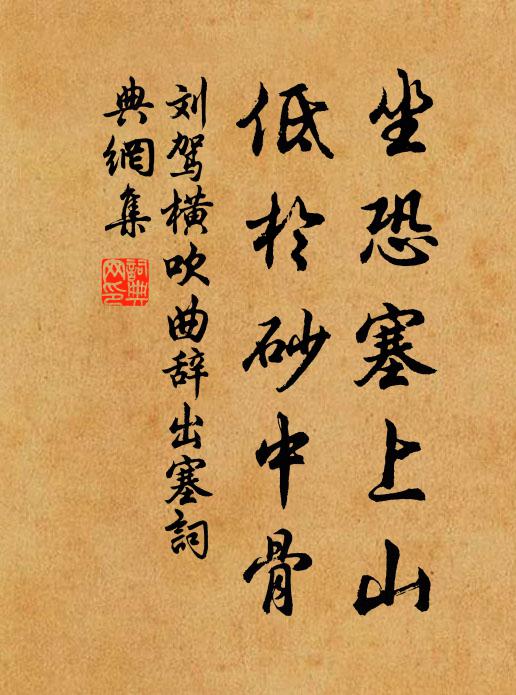 坐恐塞上山
低於砂中骨
刘驾橫吹曲辞出塞詞
典網集
詞典
网印